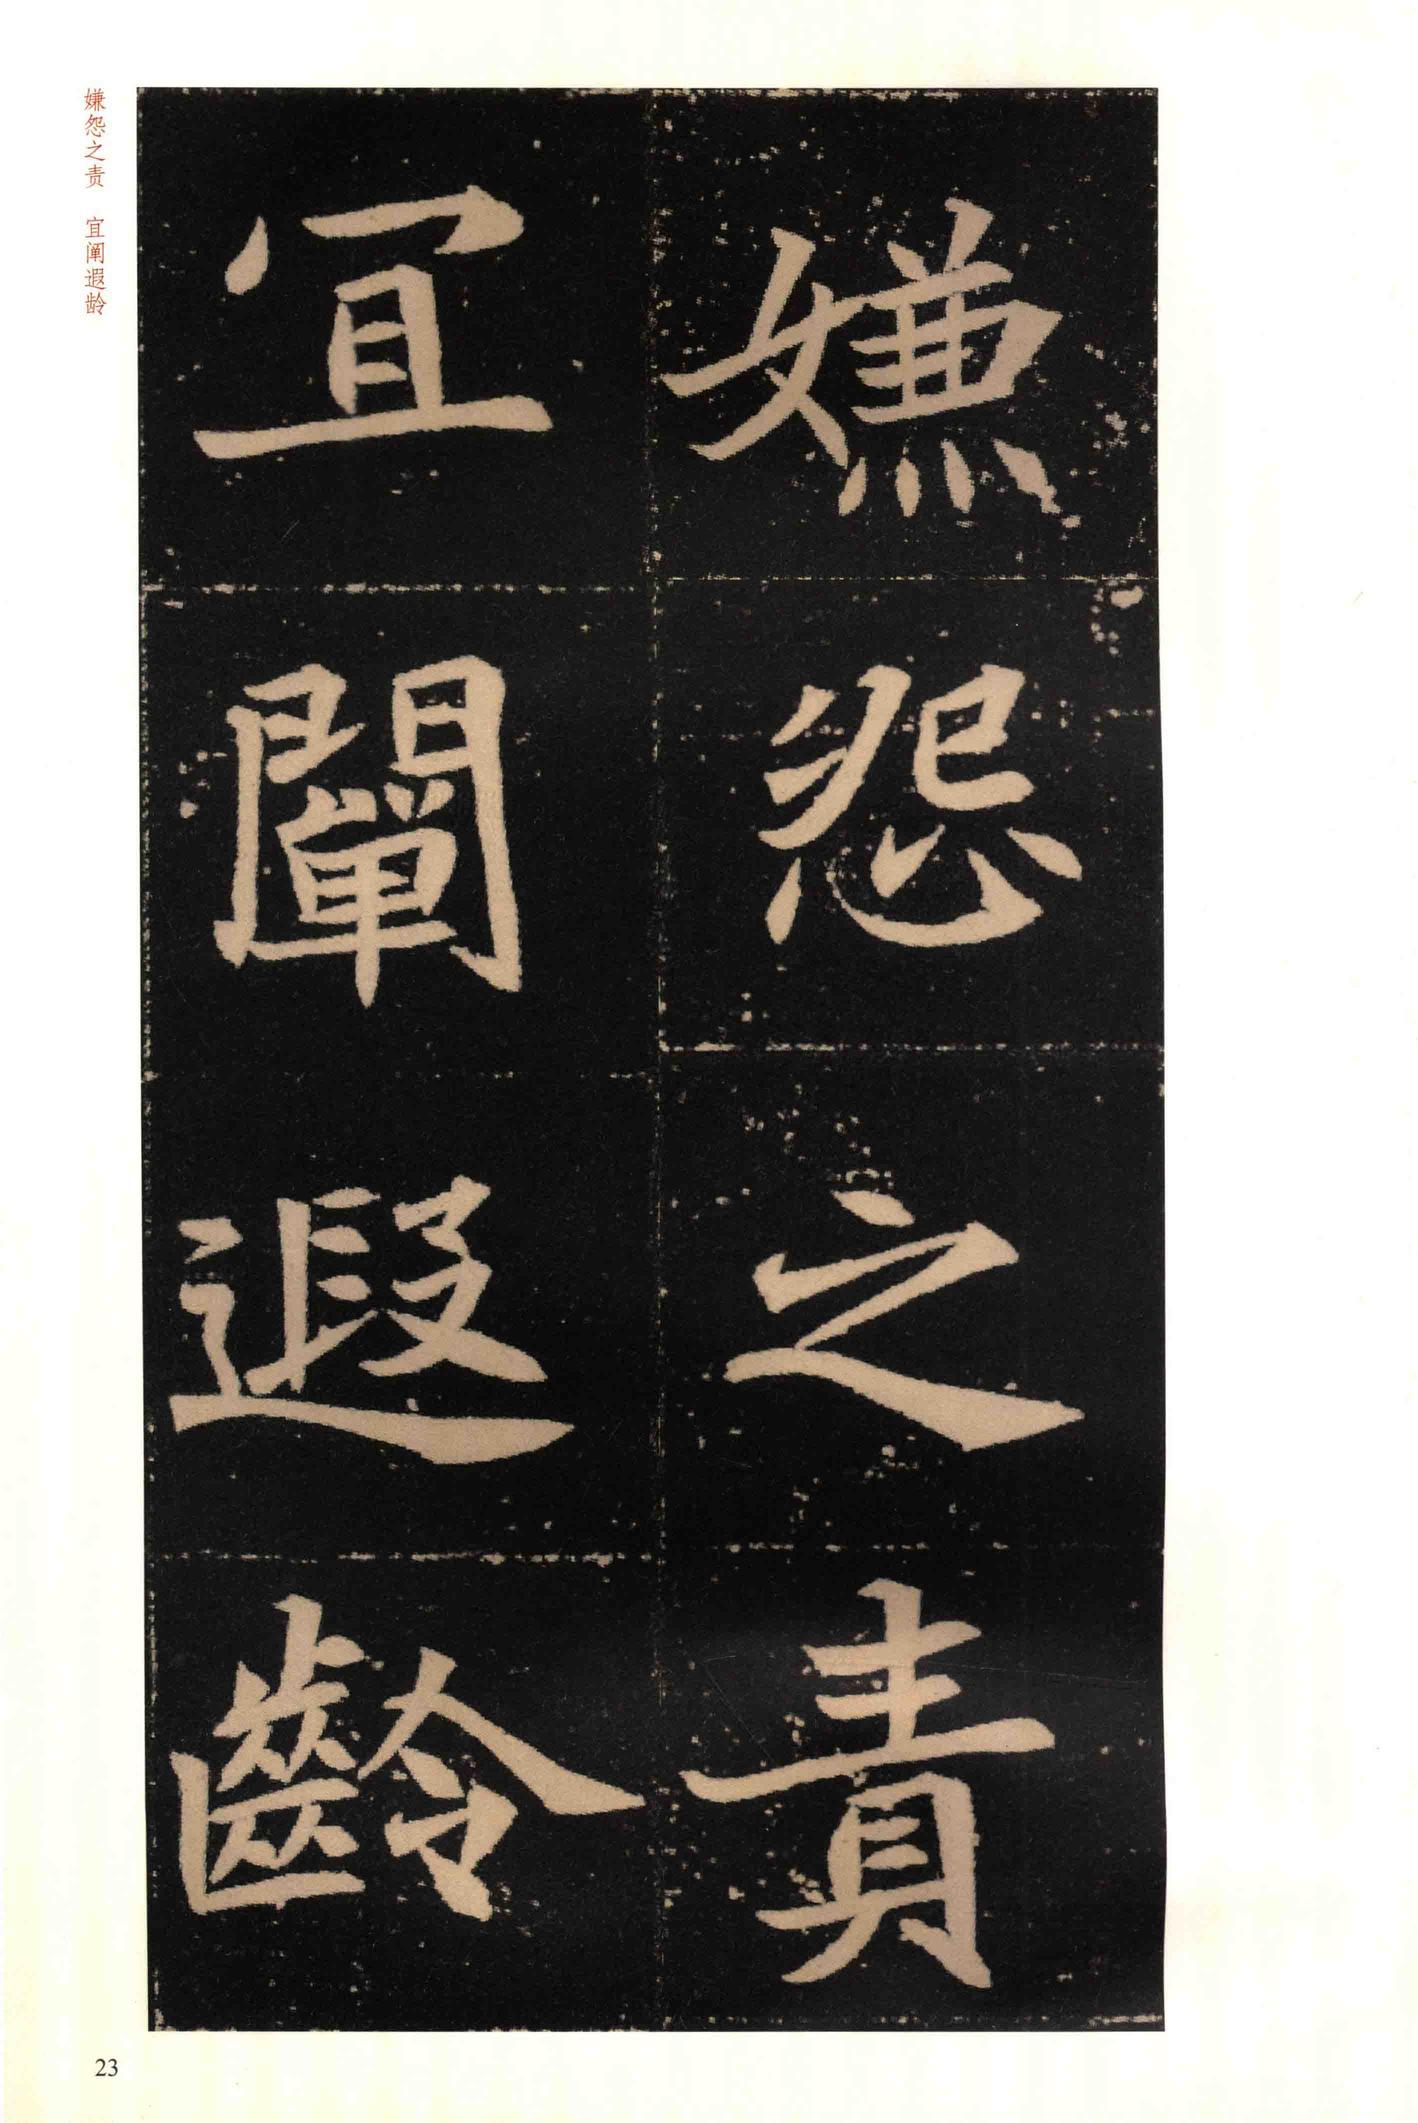 嫌怨之責
宜闡遐齡
嫌怨之责 宜阐遐龄
23